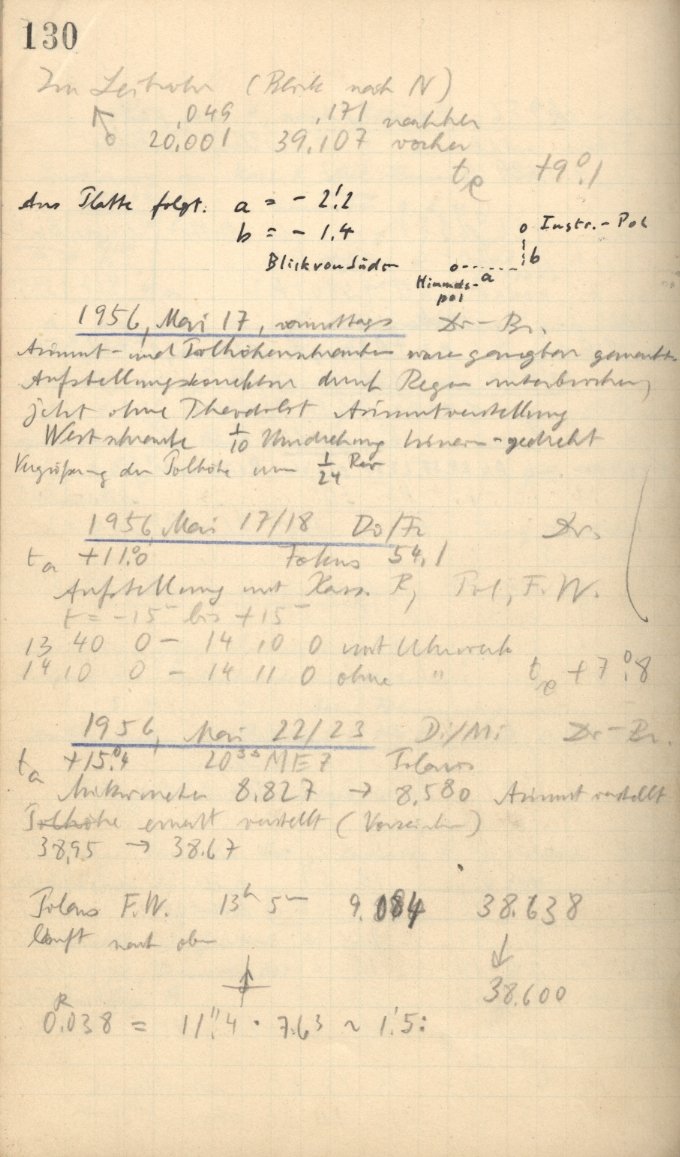 130
Im Leitrohr (Blick nach N)
,049 ,171 nachher
20.001 39.107 vorher
te +9°.1
Aus Platte folgt: a = - 2'.2
b = - 1.4
Blick von Süden
Instr.-Pol
b
a
Himmels-
pol
1956, Mai 17, vormittags Dr-Br.
Azimut- und Polhöhenschrauben waren gangbar gemacht.
Aufstellungskorrektur durch Regen unterbrochen,
jetzt ohne Theodolit Azimutverstellung
Westschraube 1/10 Umdrehung hinein-gedreht
Vergrößerung der Polhöhe um 1/24 Rev
1956, Mai 17/18 Do/Fr Dr.
ta +11°.0 Fokus 54.1
Aufstellung mit Kass. R, Pol, F.W.
t = -15m bis +15m
13 40 0 - 14 10 0 mit Uhrwerk
14 10 0 - 14 11 0 ohne " te +7°.8
1956, Mai 22/23 Di/Mi Dr-Br.
ta +15°.4 20 35 MEZ Polaris
Mikrometer 8.827 → 8.580 Azimut verstellt
Polhöhe erneut verstellt (Vorzeichen)
38,95 → 38.67
Polaris F.W. 13h 5m 9.084 38.638
läuft nach oben ↓
38.600
0.R038 = 11".4 · 7.63 ~ 1'.5: